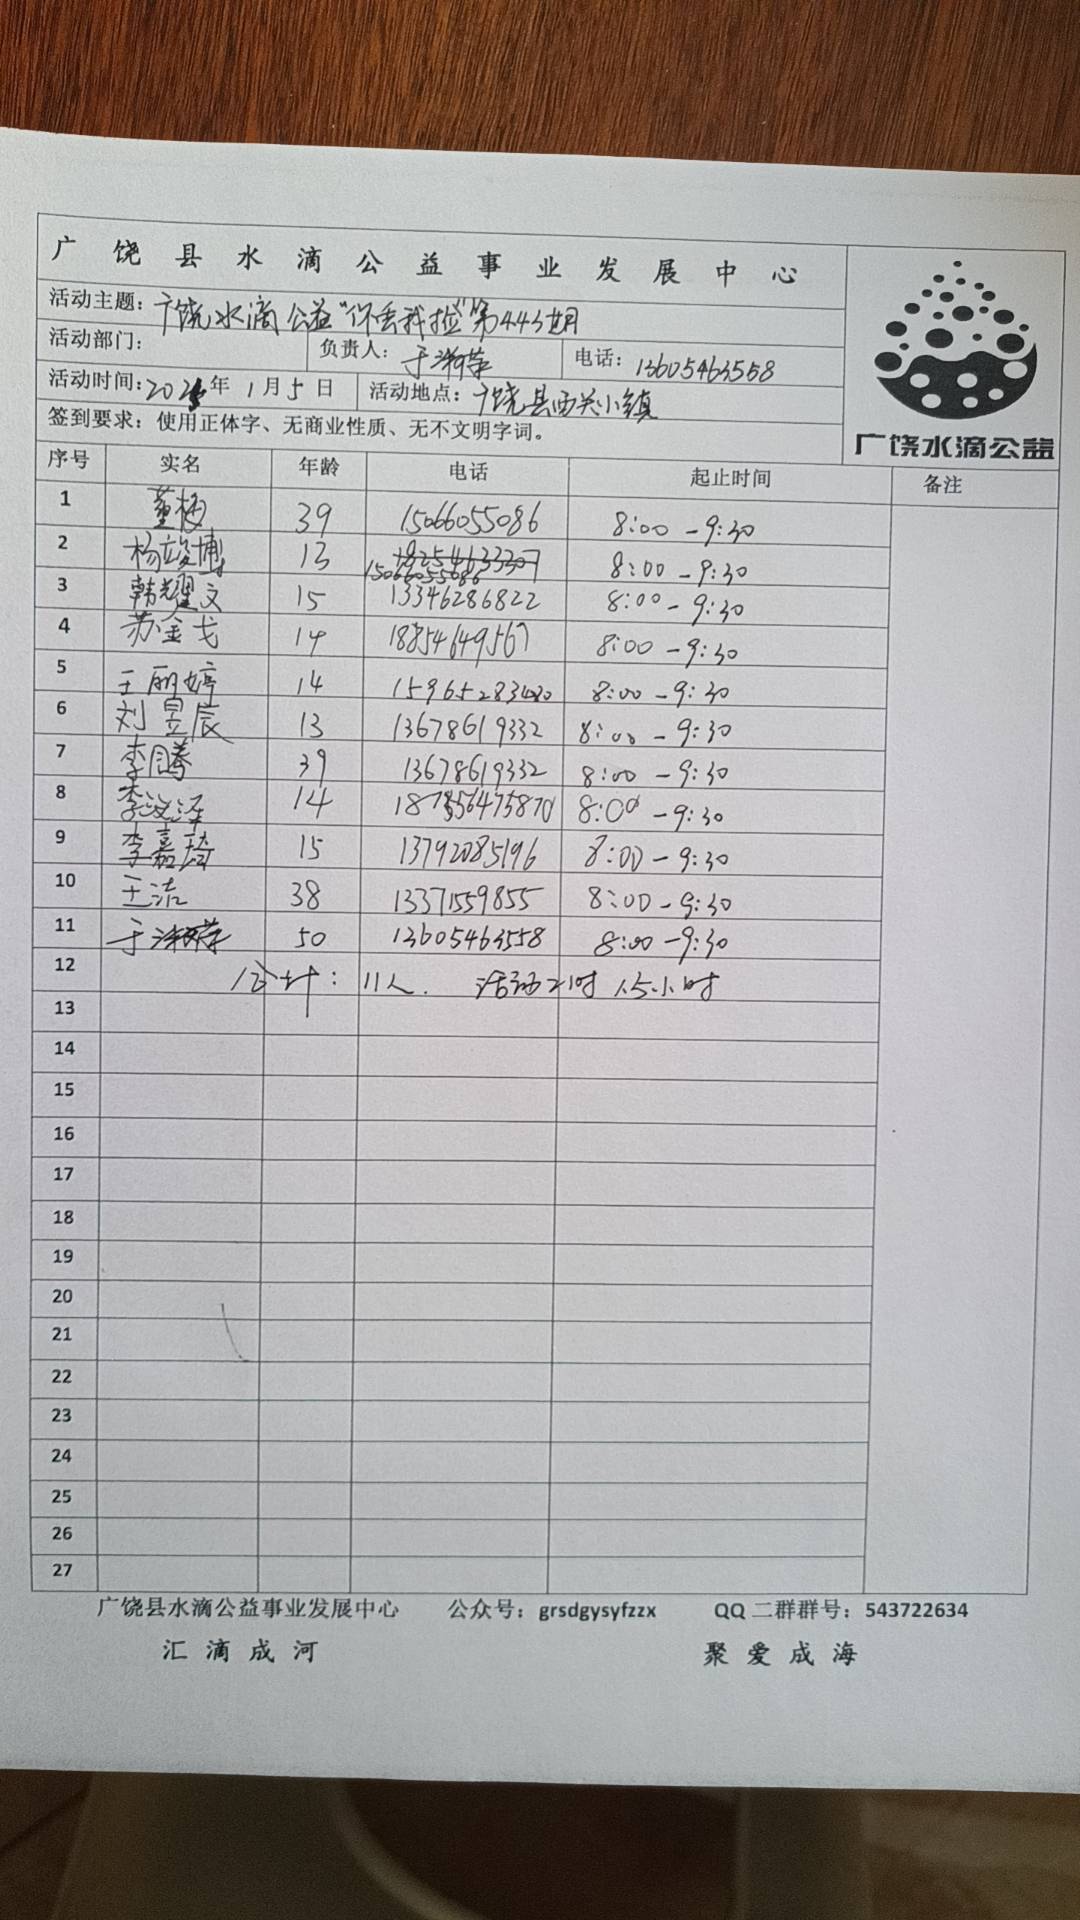 广饶县水滴公益事业发展中心
活动主题：广饶水滴公益“你丢我捡”第443期
活动部门： 负责人：于淑荣 电话：13605463558
活动时间：2025年1月5日 活动地点：广饶县西关小镇
签到要求：使用正体字、无商业性质、无不文明字词。
广饶水滴公益
序号 实名 年龄 电话 起止时间 备注
1 董梅 39 15066055086 8:00-9:30
2 杨竣博 13 15066055086 8:00-9:30
3 韩耀文 15 13346286822 8:00-9:30
4 苏金戈 14 18854649567 8:00-9:30
5 王丽婷 14 8:00-9:30
6 刘昱辰 13 13678619332 8:00-9:30
7 李腾 39 13678619332 8:00-9:30
8 李 泽 14 8:00-9:30
9 李嘉琦 15 13792085196 8:00-9:30
10 王洁 38 13371559855 8:00-9:30
11 于淑荣 50 13605463558 8:00-9:30
12 合计：11人. 活动工时 1.5小时
13
14
15
16
17
18
19
20
21
22
23
24
25
26
27
广饶县水滴公益事业发展中心 公众号：grsdgysyfzzx QQ二群群号：543722634
汇滴成河 聚爱成海